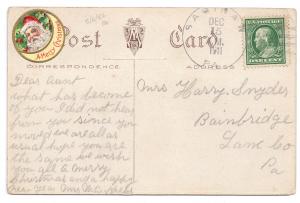 A Merry Christmas
Post Card
CORRESPONDENCE
ADDRESS
DEC
15
1911
PA.
ONE CENT
Dear Aunt
what has become
of you I did not hear
from you since you
moved we are all as
usual hope you are
the same we wish
you all a merry
Christmas and a happy
new Year Mrs
Mrs Harry Snyder
Bainbridge
Lanc Co
Pa